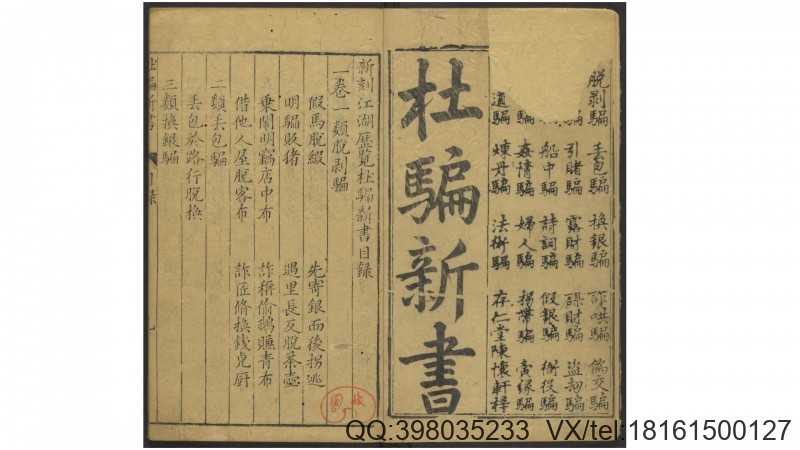 脫剥騙 丢包騙 換銀騙 詐哄騙 僞交騙
騙 引賭騙 露財騙 謀財騙 盗劫騙
騙 船中騙 詩詞騙 假銀騙 衙役騙
騙 姦情騙 婦人騙 拐帶騙 賣緣騙
道騙 煉丹騙 法術騙 存仁堂陳懷軒梓
杜騙新書
新刻江湖歷覽杜騙新書目錄
一卷一類脫剥騙
假馬脫緞 先寄銀而後拐逃
明騙販猪 遇里長反脫茶壺
乗鬧明竊店中布 詐稱偷鵝脫青布
借他人屋脫客布 詐匠修換錢桌厨
二類丢包騙
丢包於路行脫換
三類換銀騙
杜騙新書 目錄
QQ:398035233 VX/tel:18161500127